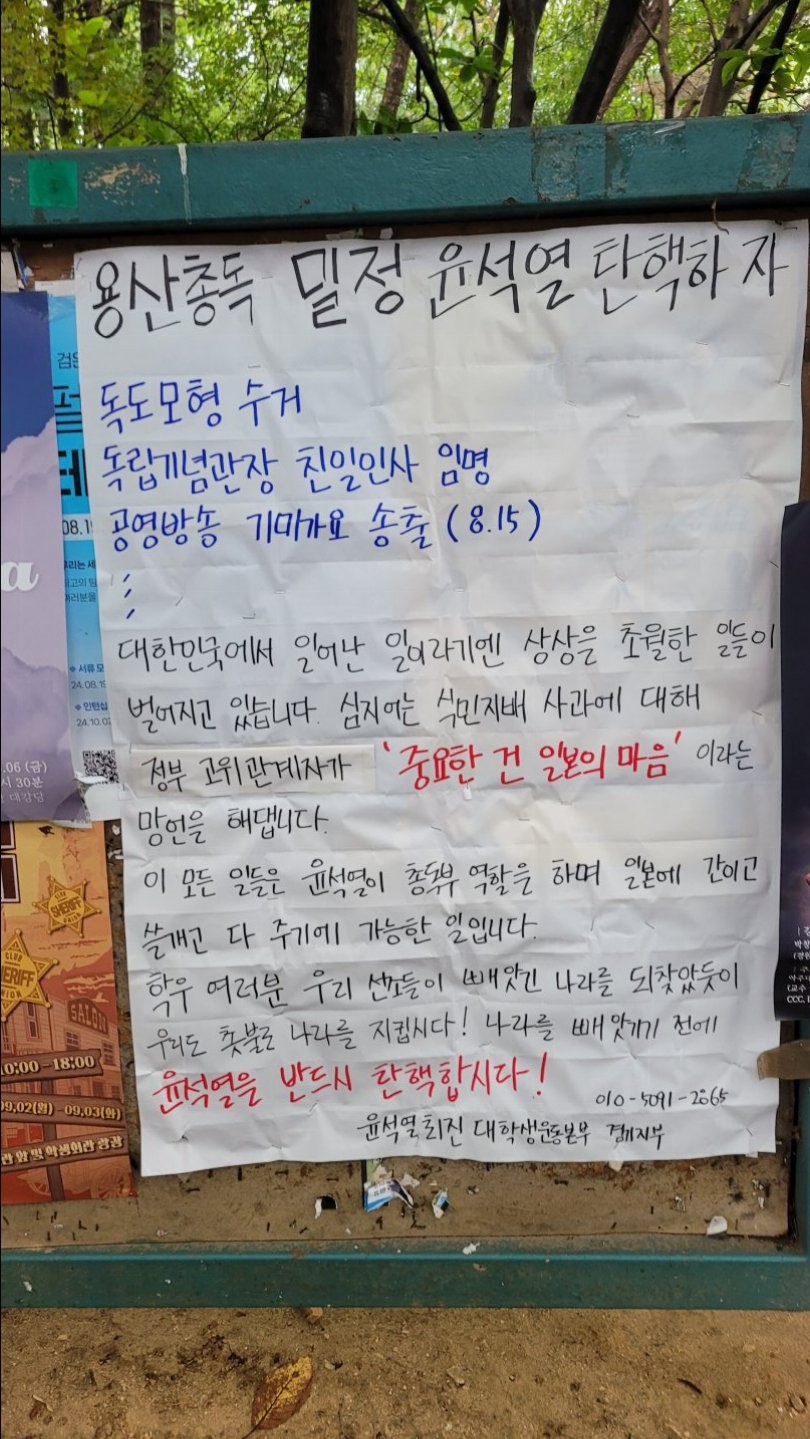 용산총독 밀정 윤석열 탄핵하자
독도모형 수거
독립기념관장 친일인사 임명
공영방송 기미가요 송출 (8.15)
⋮
대한민국에서 일어난 일이라기엔 상상을 초월한 일들이
벌어지고 있습니다. 심지어는 식민지배 사과에 대해
정부 고위관계자가 '중요한 건 일본의 마음' 이라는
망언을 해댑니다.
이 모든 일들은 윤석열이 총독부 역할을 하며 일본에 간이고
쓸개고 다 주기에 가능한 일입니다.
학우 여러분 우리 선조들이 빼앗긴 나라를 되찾았듯이
우리도 촛불로 나라를 지킵시다! 나라를 빼앗기기 전에
윤석열을 반드시 탄핵합시다!
010-5091-2065
윤석열퇴진 대학생운동본부 경기지부
a
.06 (금)
시 30분
대강당
검은
08.19
24.08.19
24.10.02
CLUB
SHERIFF
UNION
SHERIFF
SALOON
10:00 -18:00
09.02(월) -09.03(화)
관 앞 및 학생회관 광장
(교수
CCC,